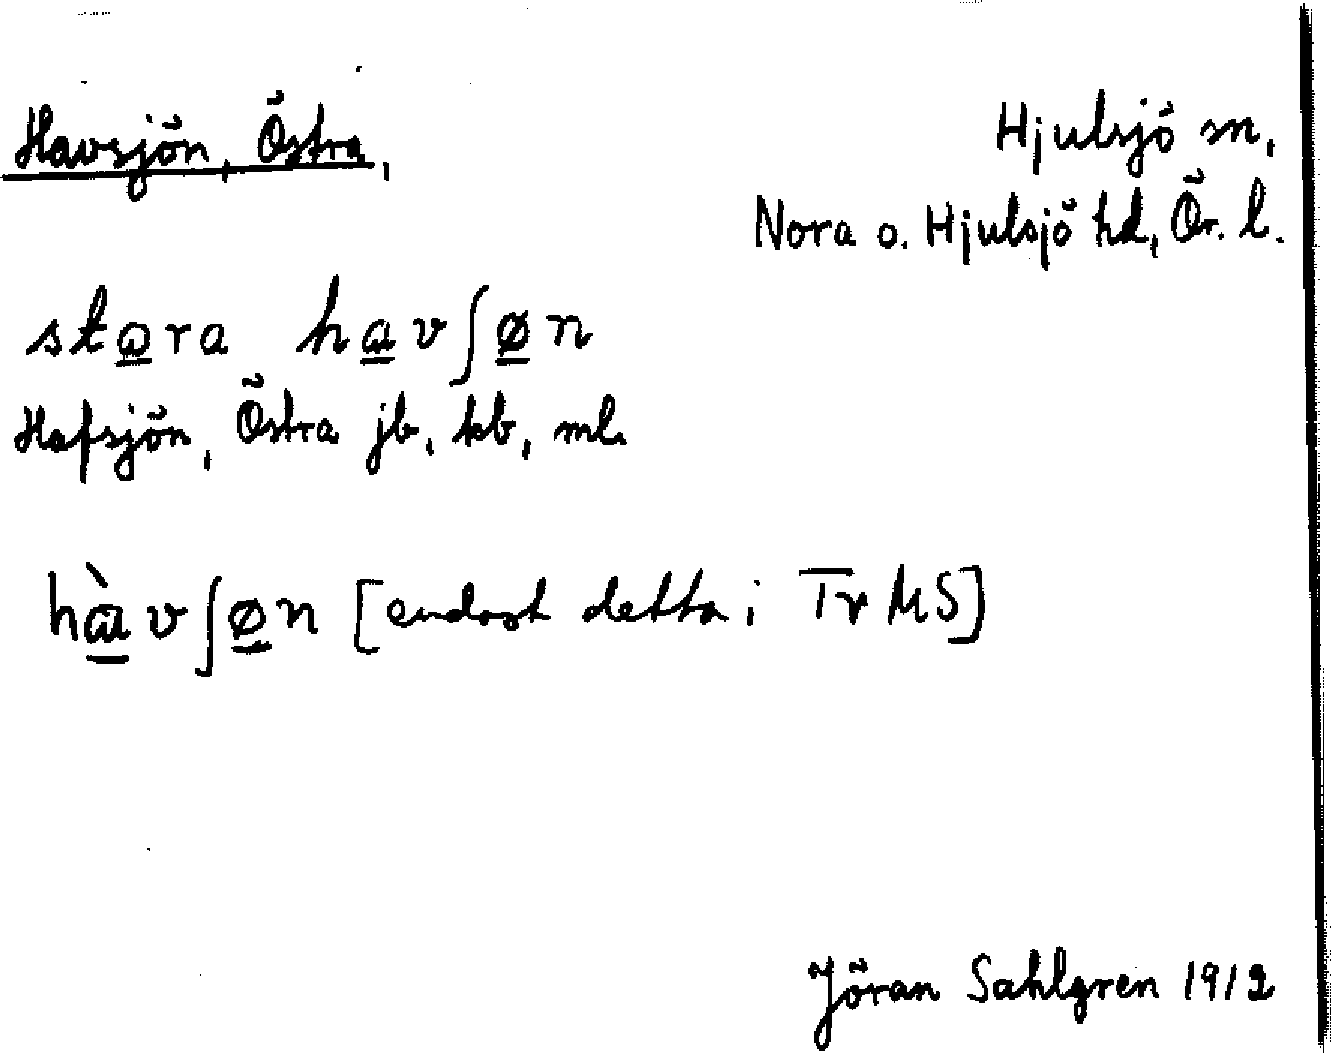 Havsjön, Östra,
Hjulsjö sn,
Nora o. Hjulsjö hd, Ör. l.
stɷra havʃøn
Hafsjön, Östra jb, kb, ml.
hàvʃøn [endast detta i Tr MS]
Jöran Sahlgren 1912